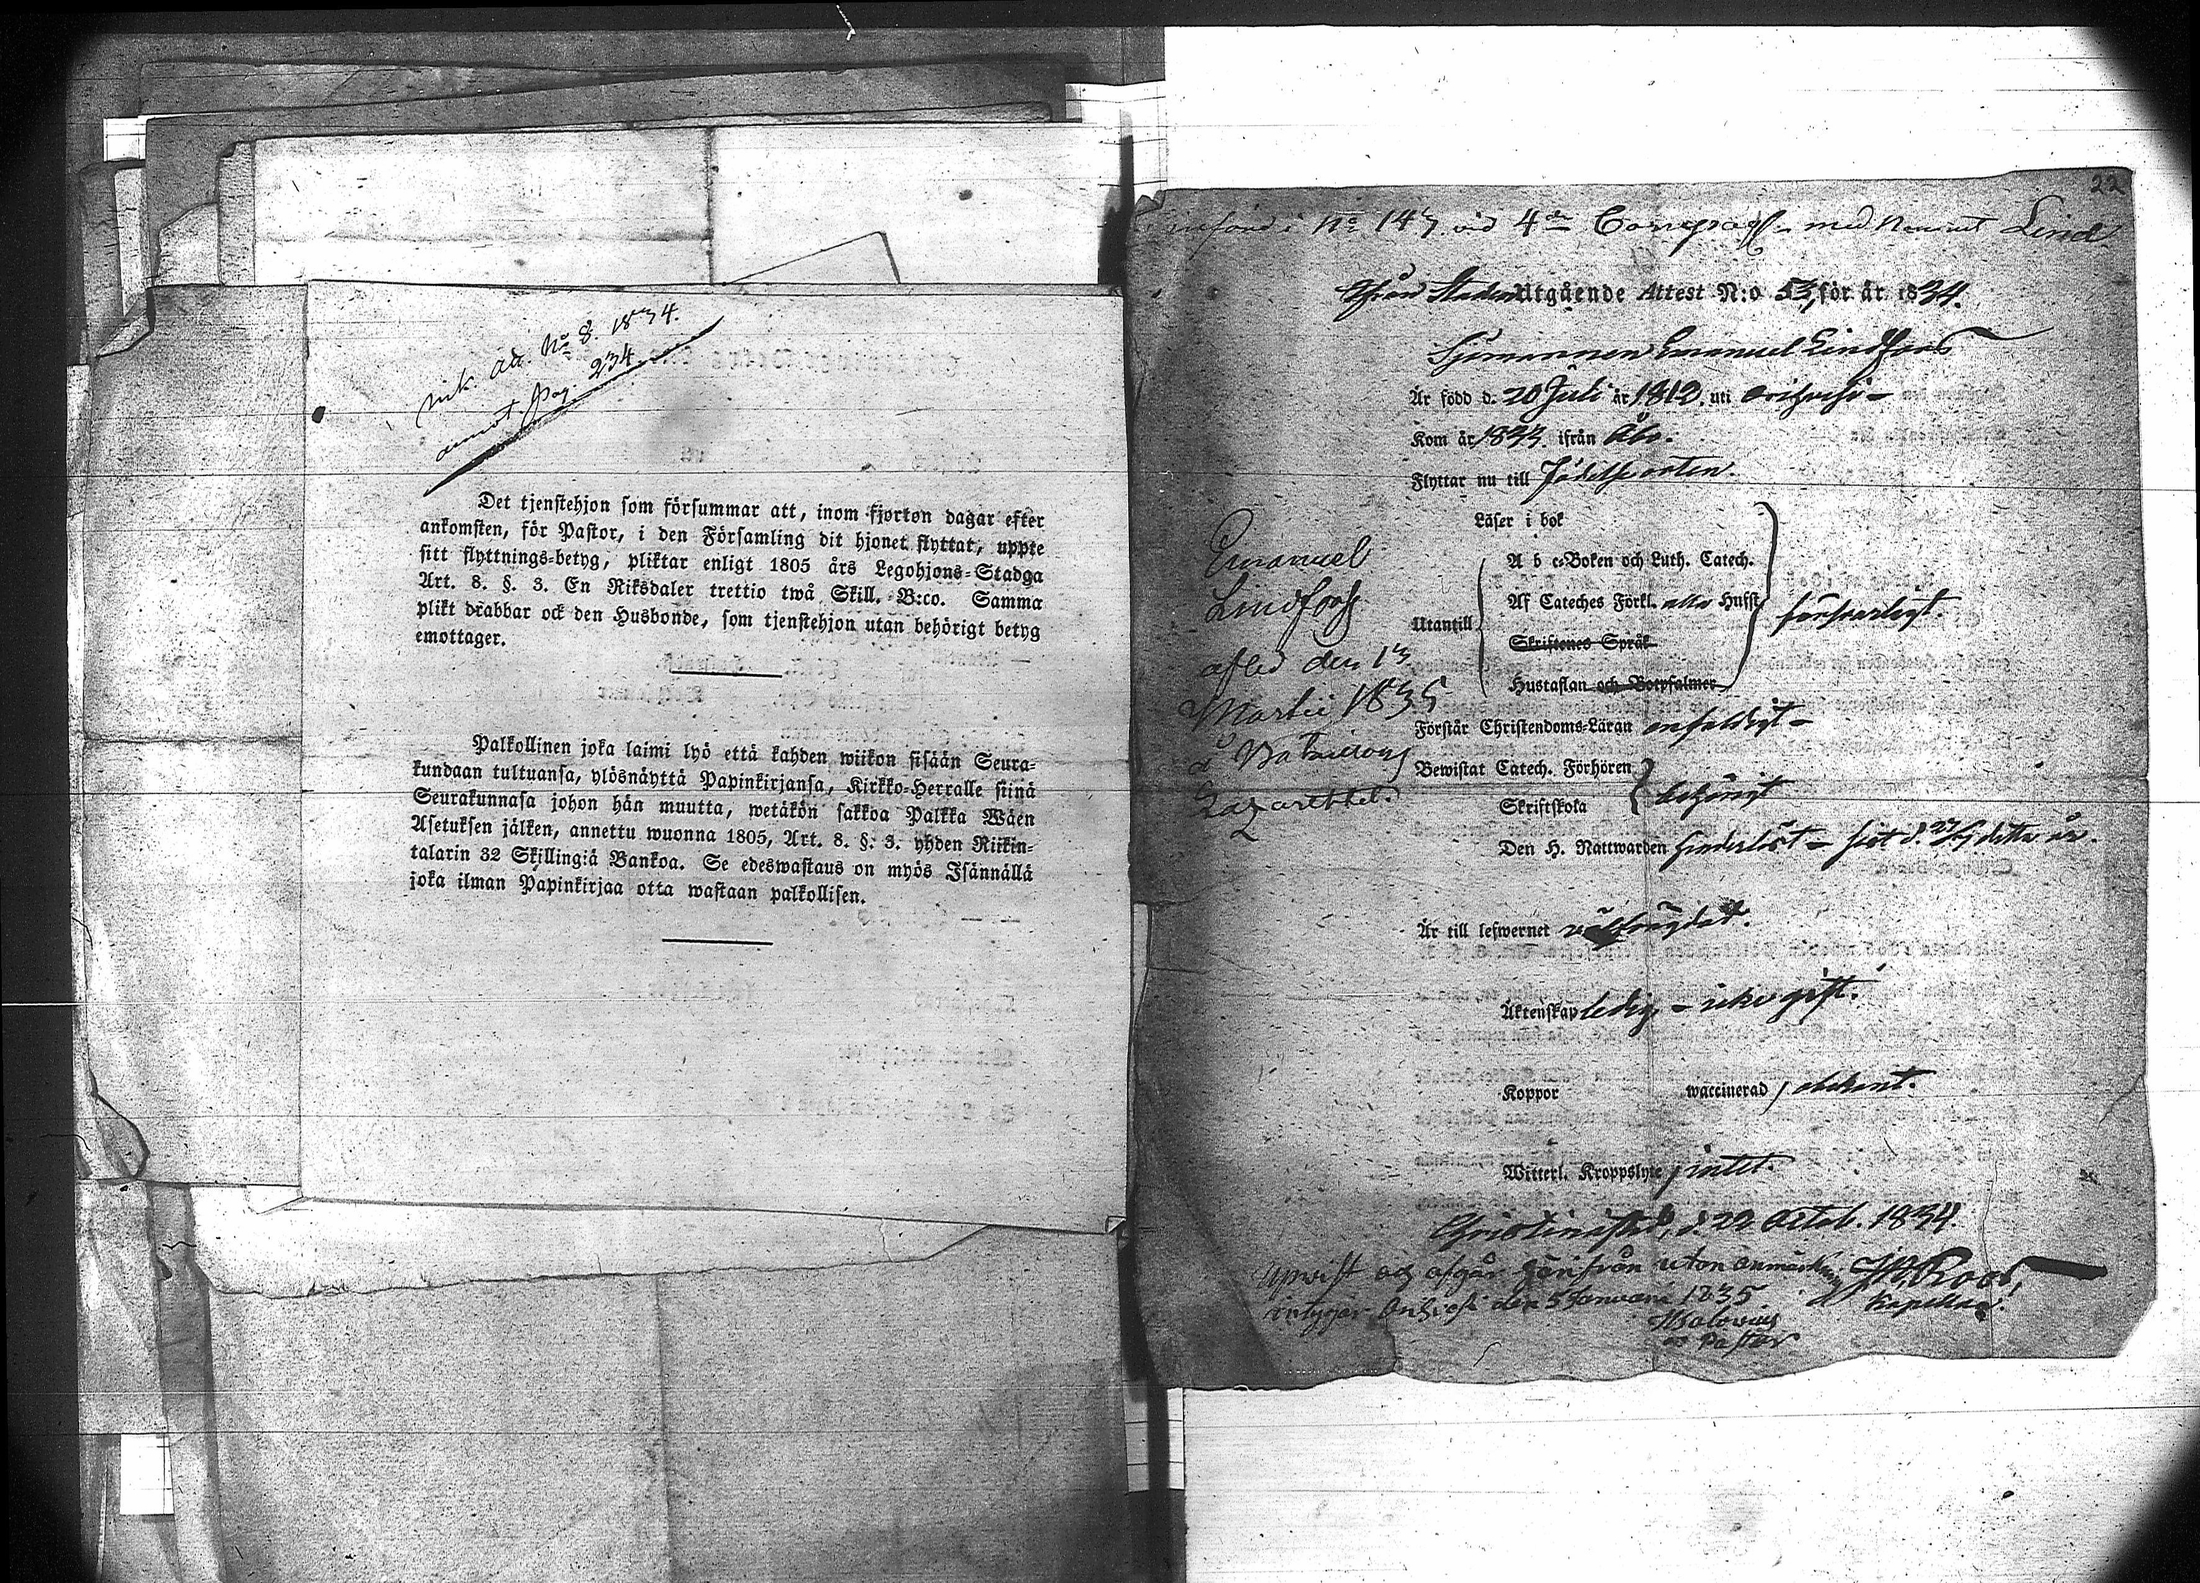 ink. ad. No 8. 1834.
annot. pag. 234.
Det tjenstehjon som försummar att, inom fjorton dagar efter
ankomsten, för Pastor, i den Församling dit hjonet flyttat, uppte
sitt flyttnings-betyg, pliktar enligt 1805 års Legohjons-Stadga
Art. 8. §. 3. En Riksdaler trettio twå Skill. B:co. Samma
plikt drabbar ock den Husbonde, som tjenstehjon utan behörigt betyg
emottager.
Palkollinen joka laimi lyö että kahden wiikon sisään Seura-
kundaan tultuansa, ylösnäyttä Papinkirjansa, Kirkko-Herralle siinä
Seurakunnasa johon hän muutta, wetäkön sakkoa Palkka Wäen
Asetuksen jälken, annettu wuonna 1805, Art. 8. §. 3. yhden Riikin-
talarin 32 Skillingiä Bankoa. Se edeswastaus on myös Isännällä
joka ilman Papinkirjaa otta wastaan palkollisen.
22
införd i No 147 vid 4de Comp. med Namnet Lind
Från Staden Utgående Attest N:o 53, för år 1834.
Sjömannen Emanuel Lindfors
Är född d. 20 Juli år 1812. uti
Kom år 1833 ifrån Åbo.
Flyttar nu till Födelseorten.
Läser i bok
A b c-Boken och Luth. Catech.
Utantill Af Cateches Förkl. alla Hufst
Skriftenes Språk
Hustaflan och Botpsalmer
försvarligt.
Förstår Christendoms-Läran enfaldigt -
Bewistat Catech. Förhören
Skriftskola
behörigt
Den H. Nattwarden hinderlöst - sist d. detta år.
Är till lefwernet välfrägdat.
Äktenskap ledig - icke gift.
Koppor waccinerad, obekant.
Witterl. Kroppslyte, intet.
Christinestad, d. 22 Octob. 1834.
Roos,
Kapellan.
Emanuel
Lindfors
afled den 13
Martii 1835
å Batterions
Lazarettet.
Upvist och afgår härifrån utan anmärkning
intygar den 5 Januarii 1835
Pastor